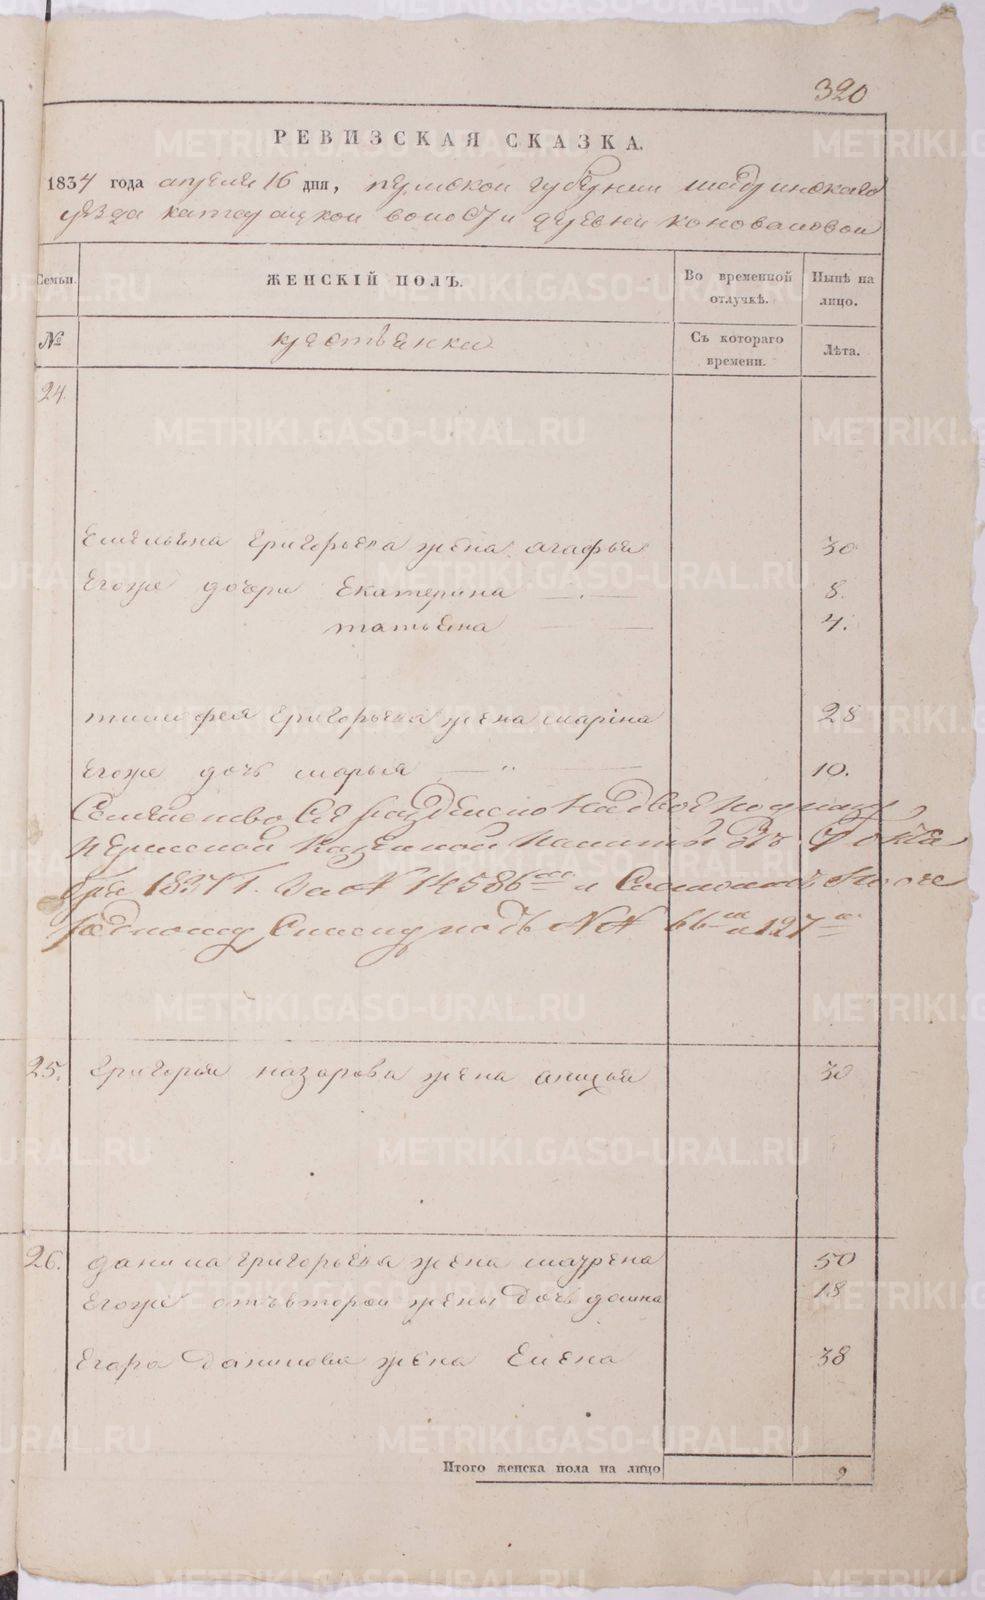 320
РЕВИЗСКАЯ СКАЗКА.
1834 года апреля 16 дня, пермской губернии шадринскаго
уезда катайцкой волости деревни коноваловой
Семьи. ЖЕНСКІЙ ПОЛЪ. Во временной отлучкѣ. Нынѣ на лицо.
№ крестьянки Съ котораго времени. Лѣта.
24.
Емельяна Григорьева жена агафья 30
Егоже дочери Екатерина 8.
татьяна 4.
тимофея Григорьева жена марiна 28
Егоже дочь марья 10.
Семейство Сіе разделено надвое по указу
пермской Казенной Палаты отъ Октя
бря 1837 г. за № 14586 и Состоитъ по оче
редному Списку подъ №№ 66 и 127
25. Григорья назарова жена 30
26. данила григорьева жена маурена 50
Егоже отъ второй жены дочь домна 18
Егора данилова жена Елена 38
Итого женска пола на лицо 9
METRIKI.GASO-URAL.RU